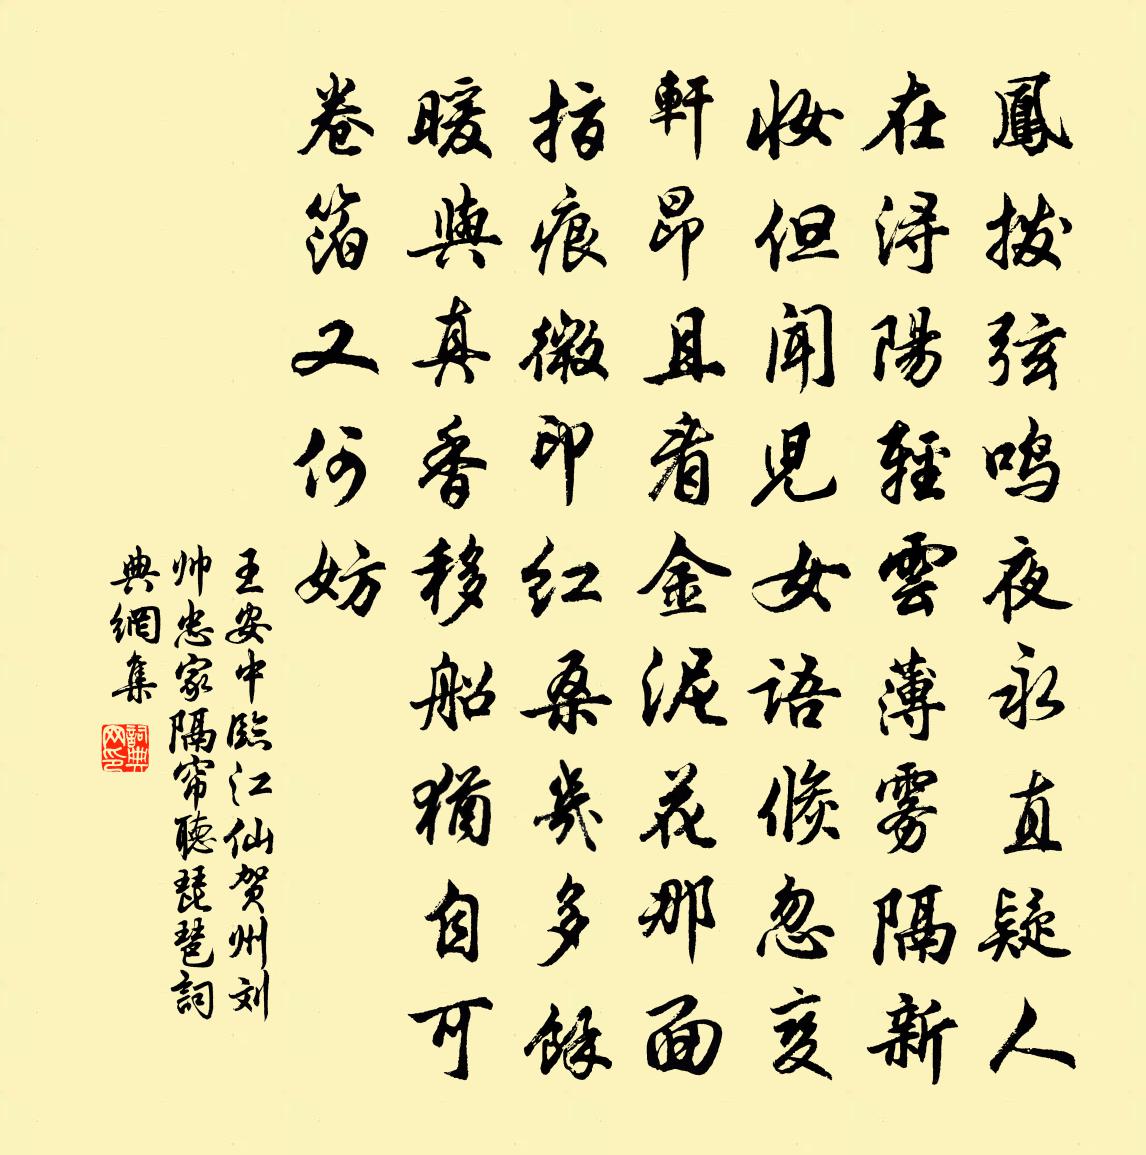 鳳撥弦鸣夜永直疑人
在浔陽輕雲薄雾隔新
妆但闻児女語倏忽变
軒昂且看金泥花那面
指痕微印红桑幾多餘
暖與真香移船猶自可
卷箔又何妨
王安中臨江仙贺州刘
帅忠家隔帘聴琵琶詞
典網集
詞典网印